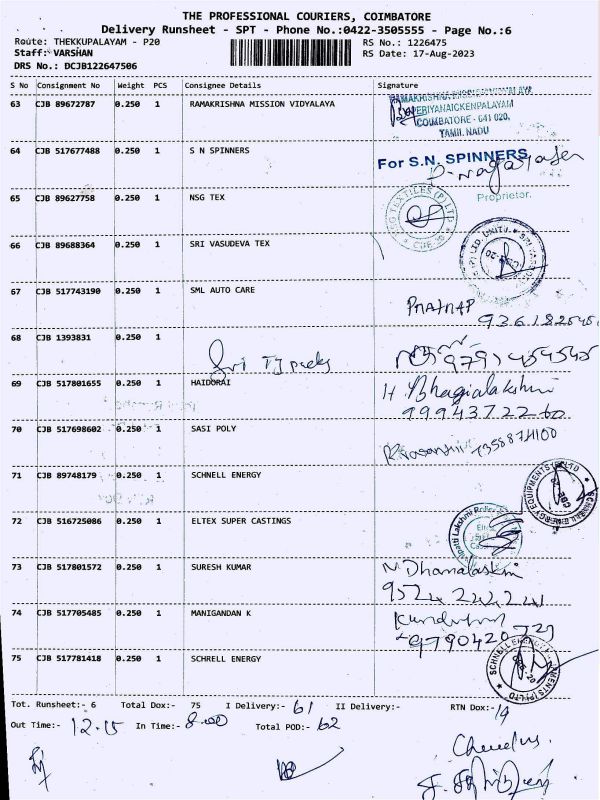 THE PROFESSIONAL COURIERS, COIMBATORE
Delivery Runsheet - SPT - Phone No.:0422-3505555 - Page No.:6
Route: THEKKUPALAYAM - P20 RS No.: 1226475
Staff: VARSHAN RS Date: 17-Aug-2023
DRS No.: DCJB122647506
S No Consignment No Weight PCS Consignee Details Signature
63 CJB 89672787 0.250 1 RAMAKRISHNA MISSION VIDYALAYA
PERIYANAICKENPALAYAM
COIMBATORE - 641 020.
TAMIL NADU
64 CJB 517677488 0.250 1 S N SPINNERS For S.N. SPINNERS
65 CJB 89627758 0.250 1 NSG TEX Proprietor.
66 CJB 89688364 0.250 1 SRI VASUDEVA TEX
67 CJB 517743190 0.250 1 SML AUTO CARE
68 CJB 1393831 0.250 1 Sri
9791454545
69 CJB 517801655 0.250 1 HAIDORAI H. Bhagialakshmi
9994372260
70 CJB 517698602 0.250 1 SASI POLY
71 CJB 89748179 0.250 1 SCHNELL ENERGY SCHNELL ENERGY EQUIPMENTS (P) LTD
72 CJB 516725086 0.250 1 ELTEX SUPER CASTINGS
73 CJB 517801572 0.250 1 SURESH KUMAR
74 CJB 517705485 0.250 1 MANIGANDAN K
9790420729
75 CJB 517781418 0.250 1 SCHRELL ENERGY
Tot. Runsheet:- 6 Total Dox:- 75 I Delivery:- 61 II Delivery:- RTN Dox:- 14
Out Time:- 12.15 In Time:- 8.00 Total POD:- 62